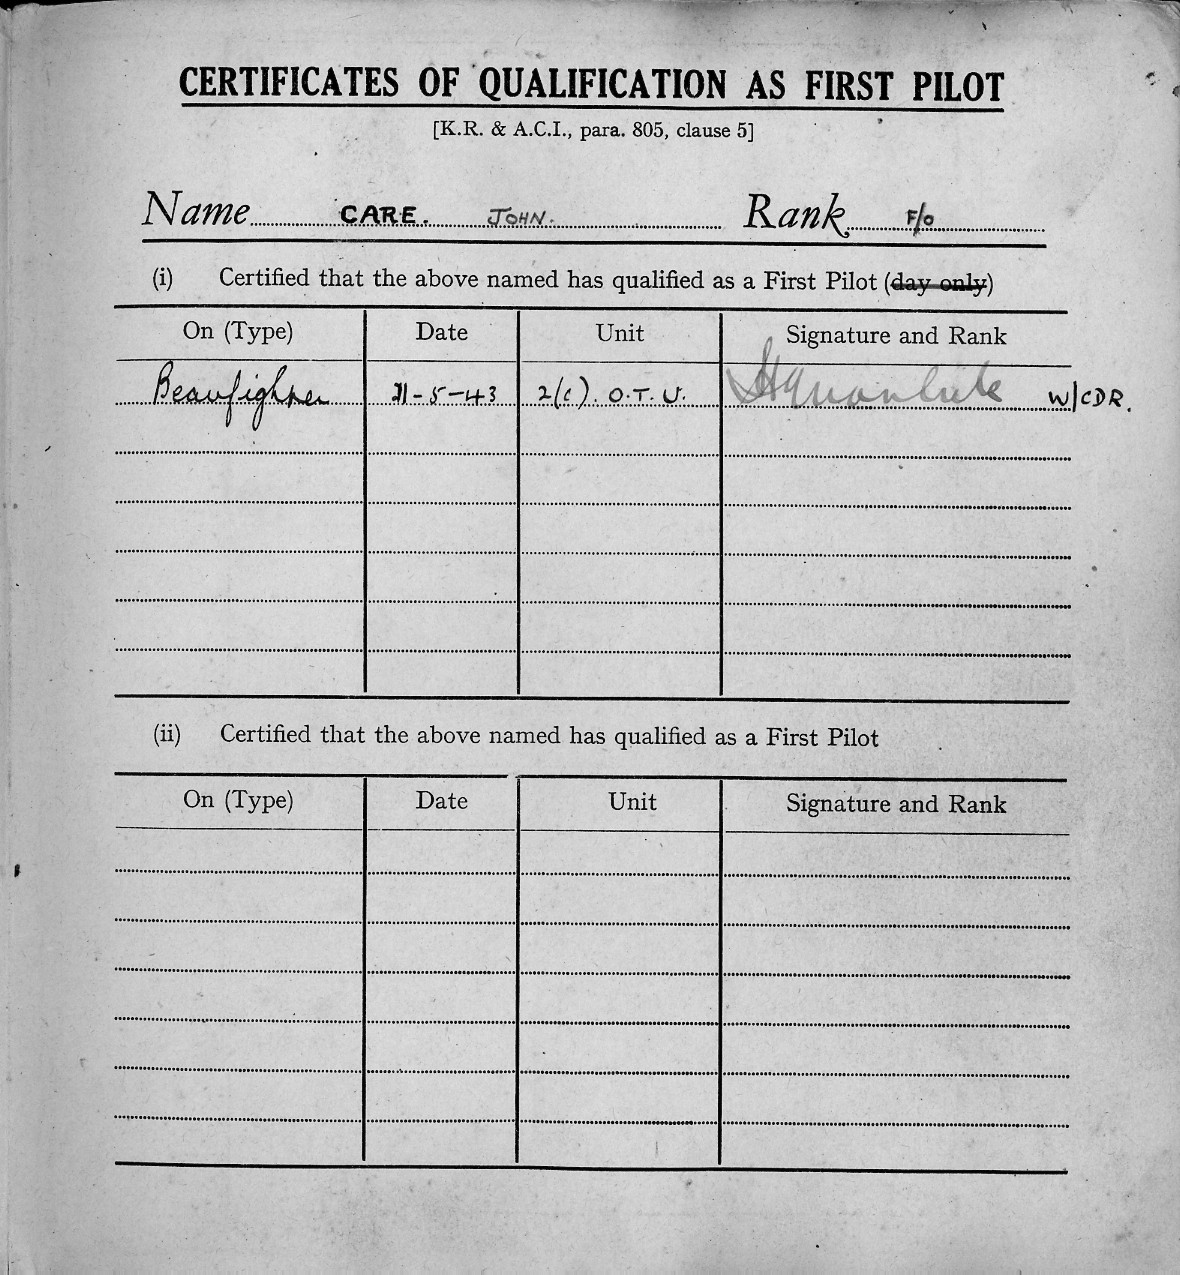 CERTIFICATES OF QUALIFICATION AS FIRST PILOT
[K.R. & A.C.I., para. 805, clause 5]
Name CARE. JOHN. Rank F/O
(i) Certified that the above named has qualified as a First Pilot (day only)
On (Type) Date Unit Signature and Rank
Beaufighter -5-43 2(C). O.T.U. W/CDR.
(ii) Certified that the above named has qualified as a First Pilot
On (Type) Date Unit Signature and Rank